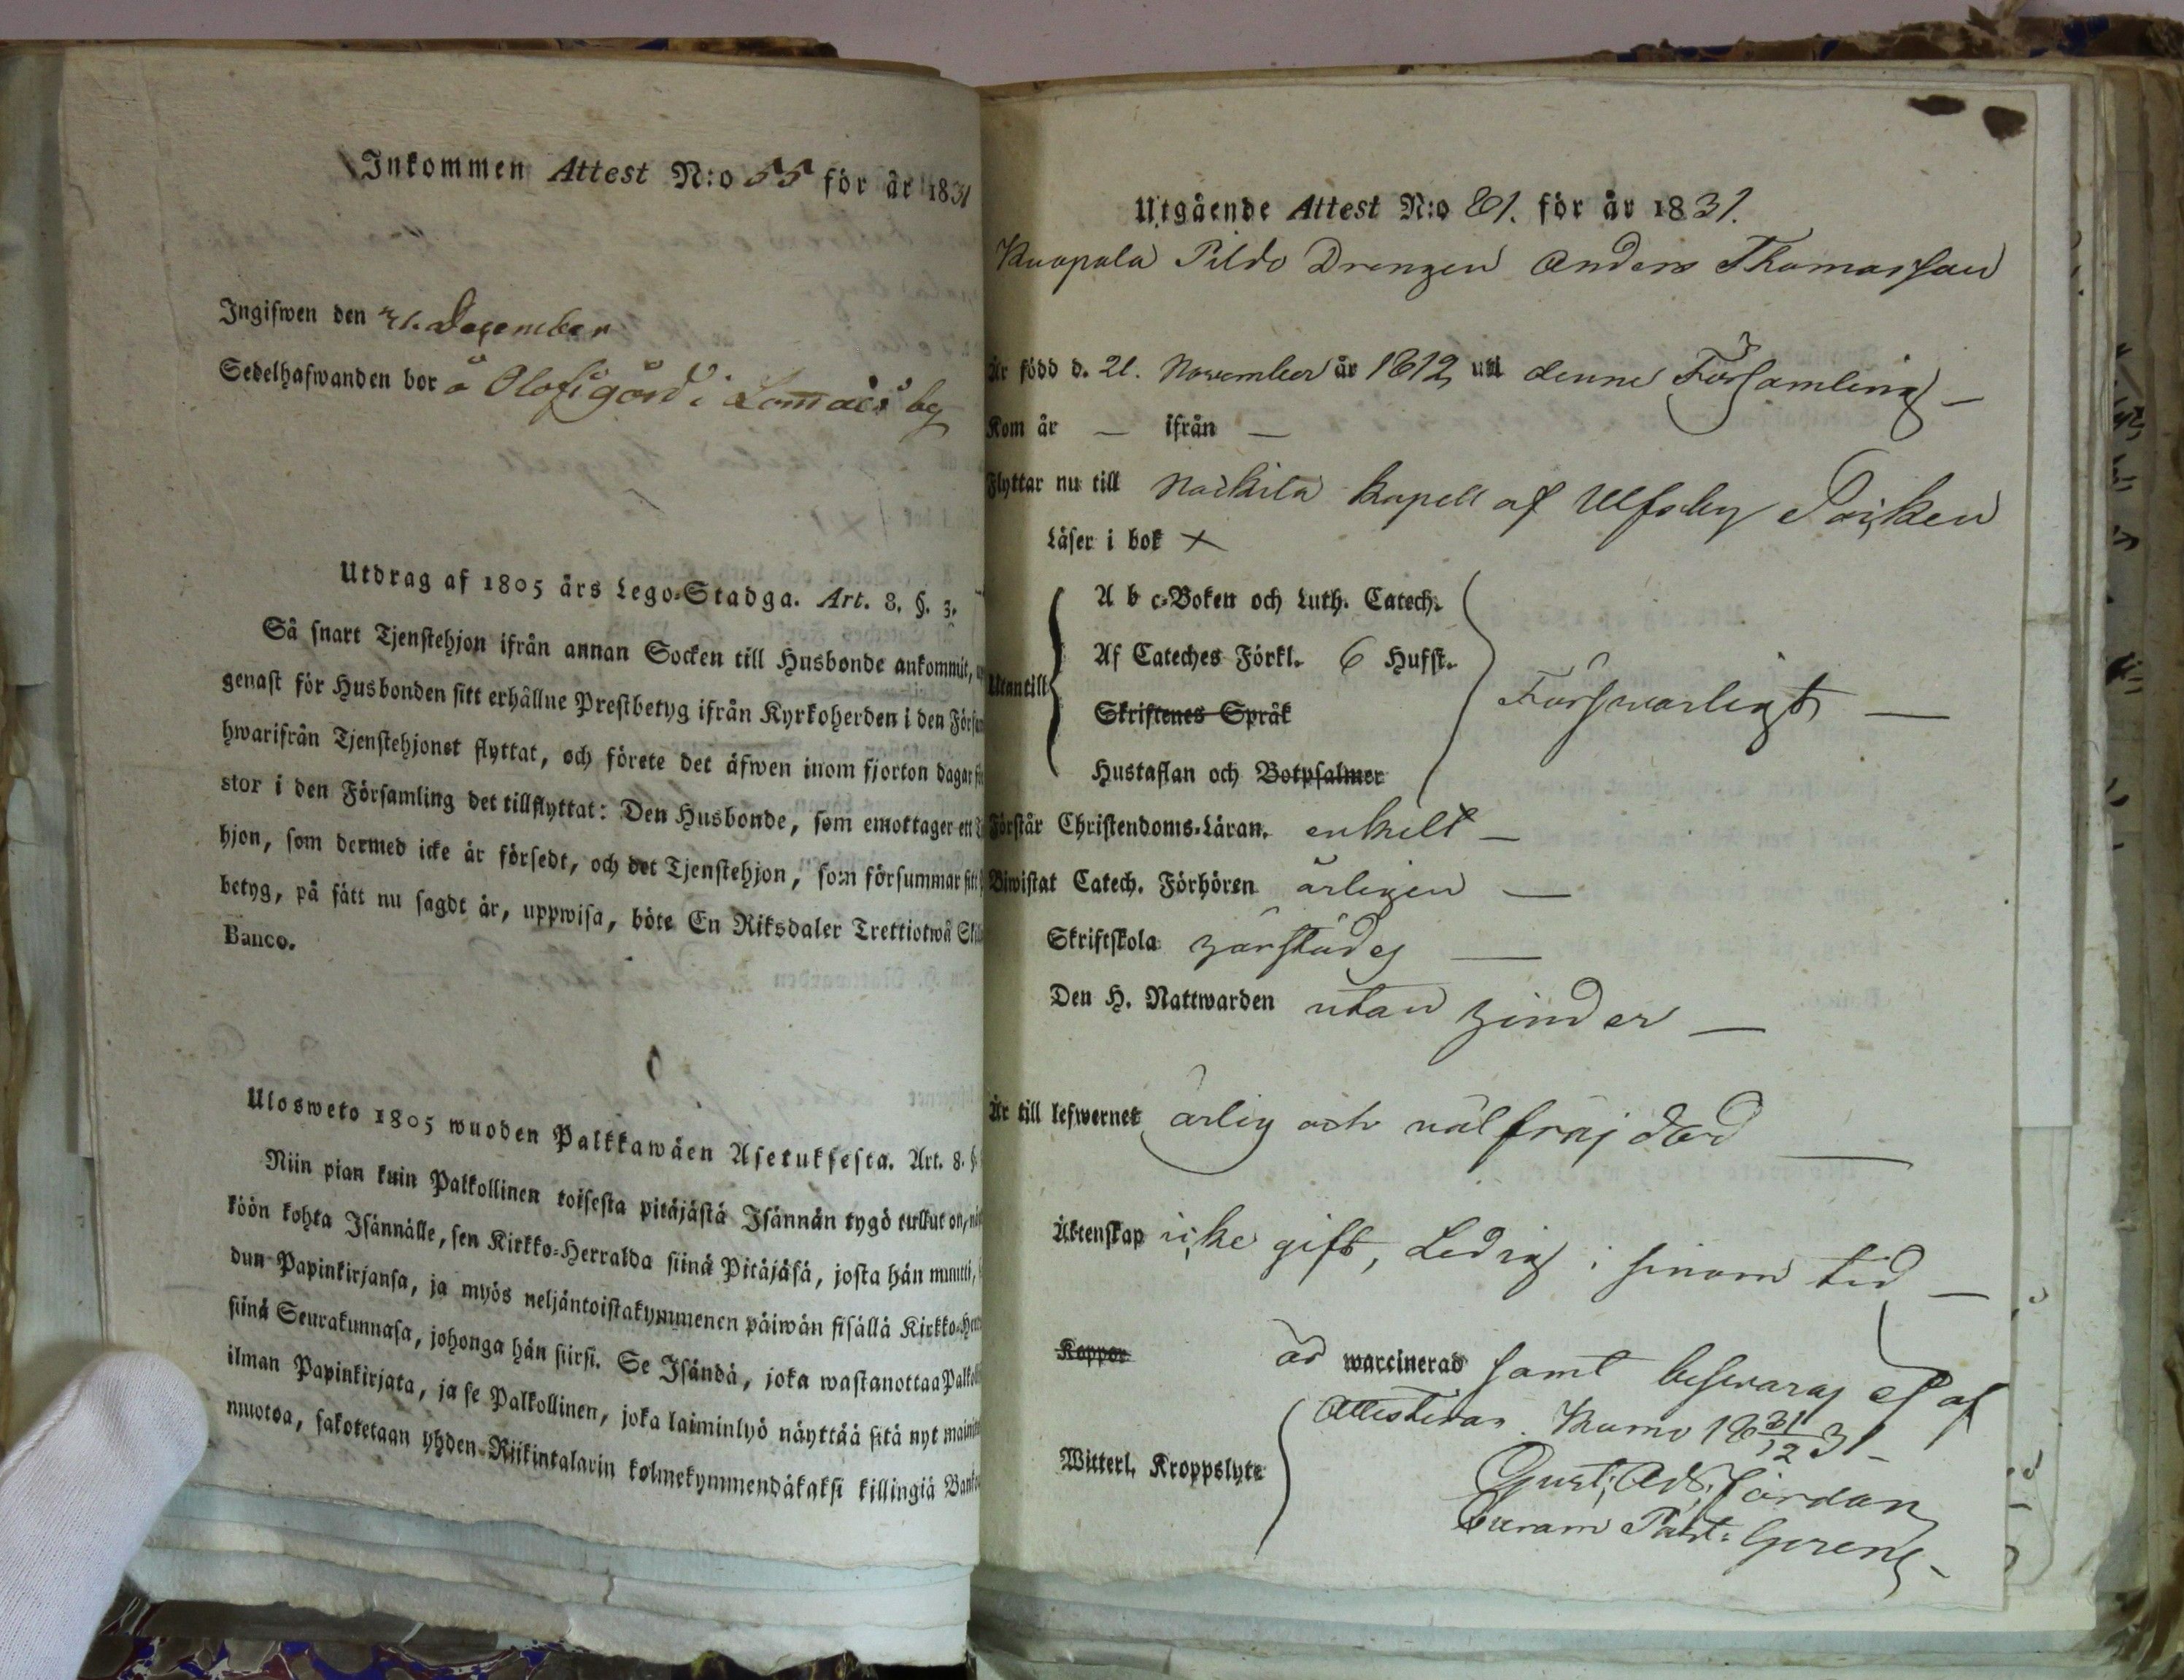 Inkommen Attest N:o 55 för år 1831
Ingifwen den 31. December
Sedelhafwanden bor å Olofsgård i Lomais by
Utdrag af 1805 års Lego-Stadga. Art. 8. §. 3.
Så snart Tjenstehjon ifrån annan Socken till Husbonde ankommit,
genast för Husbonden sitt erhållne Prestbetyg ifrån Kyrkoherden i den
hwarifrån Tjenstehjonet flyttat, och förete det äfwen inom fjorton dagar
stor i den Församling det tillflyttat: Den Husbonde, som emottager ett
hjon, som dermed icke är försedt, och det Tjenstehjon, som försummar sitt
betyg, på sätt nu sagdt är, uppwisa, böte En Riksdaler Trettiotwå
Banco.
Ulosweto 1805 wuoden Palkkawäen Asetuksesta. Art. 8. §.
Niin pian kuin Palkollinen toisesta pitäjästä Isännän tygö tullut on,
köön kohta Isännälle, sen Kirkko-Herralda siinä Pitäjäsä, josta hän muutti,
dun Papinkirjansa, ja myös neljäntoistakymmenen päiwän sisällä
siinä Seurakunnasa, johonga hän siirsi. Se Isändä, joka wastanottaa
ilman Papinkirjata, ja se Palkollinen, joka laiminlyö näyttää sitä nyt
muotoa, sakotetaan yhden Riikintalarin kolmekymmendäkaksi killingiä
Utgående Attest N:o 81. för år 1831.
Kuopala Pildo Drengen Anders Thomasson
Är född d. 21. November år 1812 uti denne Församling –
Kom år – ifrån –
Flyttar nu till Nackila Kapell af Ulfsby Socken
Läser i bok +
A b c-Boken och Luth. Catech.
Af Cateches Förkl. 6 Hufst.
Utantill
Skriftenes Språk
Försvarligt –
Hustaflan och Botpsalmer
Förstår Christendoms-Läran. enkelt –
Biwistat Catech. Förhören årligen –
Skriftskola
Den H. Nattwarden utan hinder –
Är till lefwernet ärlig och väl fräjdad –
Äktenskap icke gift, Ledig i sinom tid –
Koppor är waccinerad samt besvaras ej af
Attesteras. Kumo 18 31/12 31 –
Witterl. Kroppslyte
Gust: Ad: Jordan